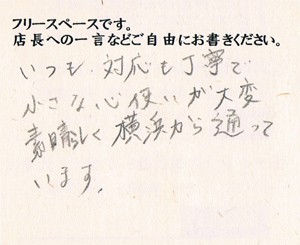 フリースペースです。
店長への一言などご自由にお書きください。
いつも対応も丁寧で
小さな心使いが大変
素晴しく横浜から通って
います。